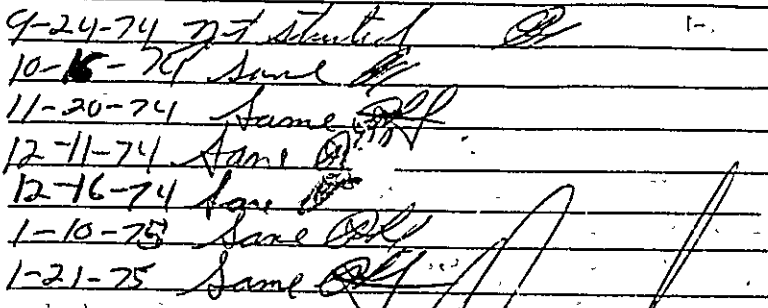 9-24-74 not started
10-16-74 Same
11-20-74 Same
12-11-74 Same
12-16-74 Same
1-10-75 Same
1-21-75 Same